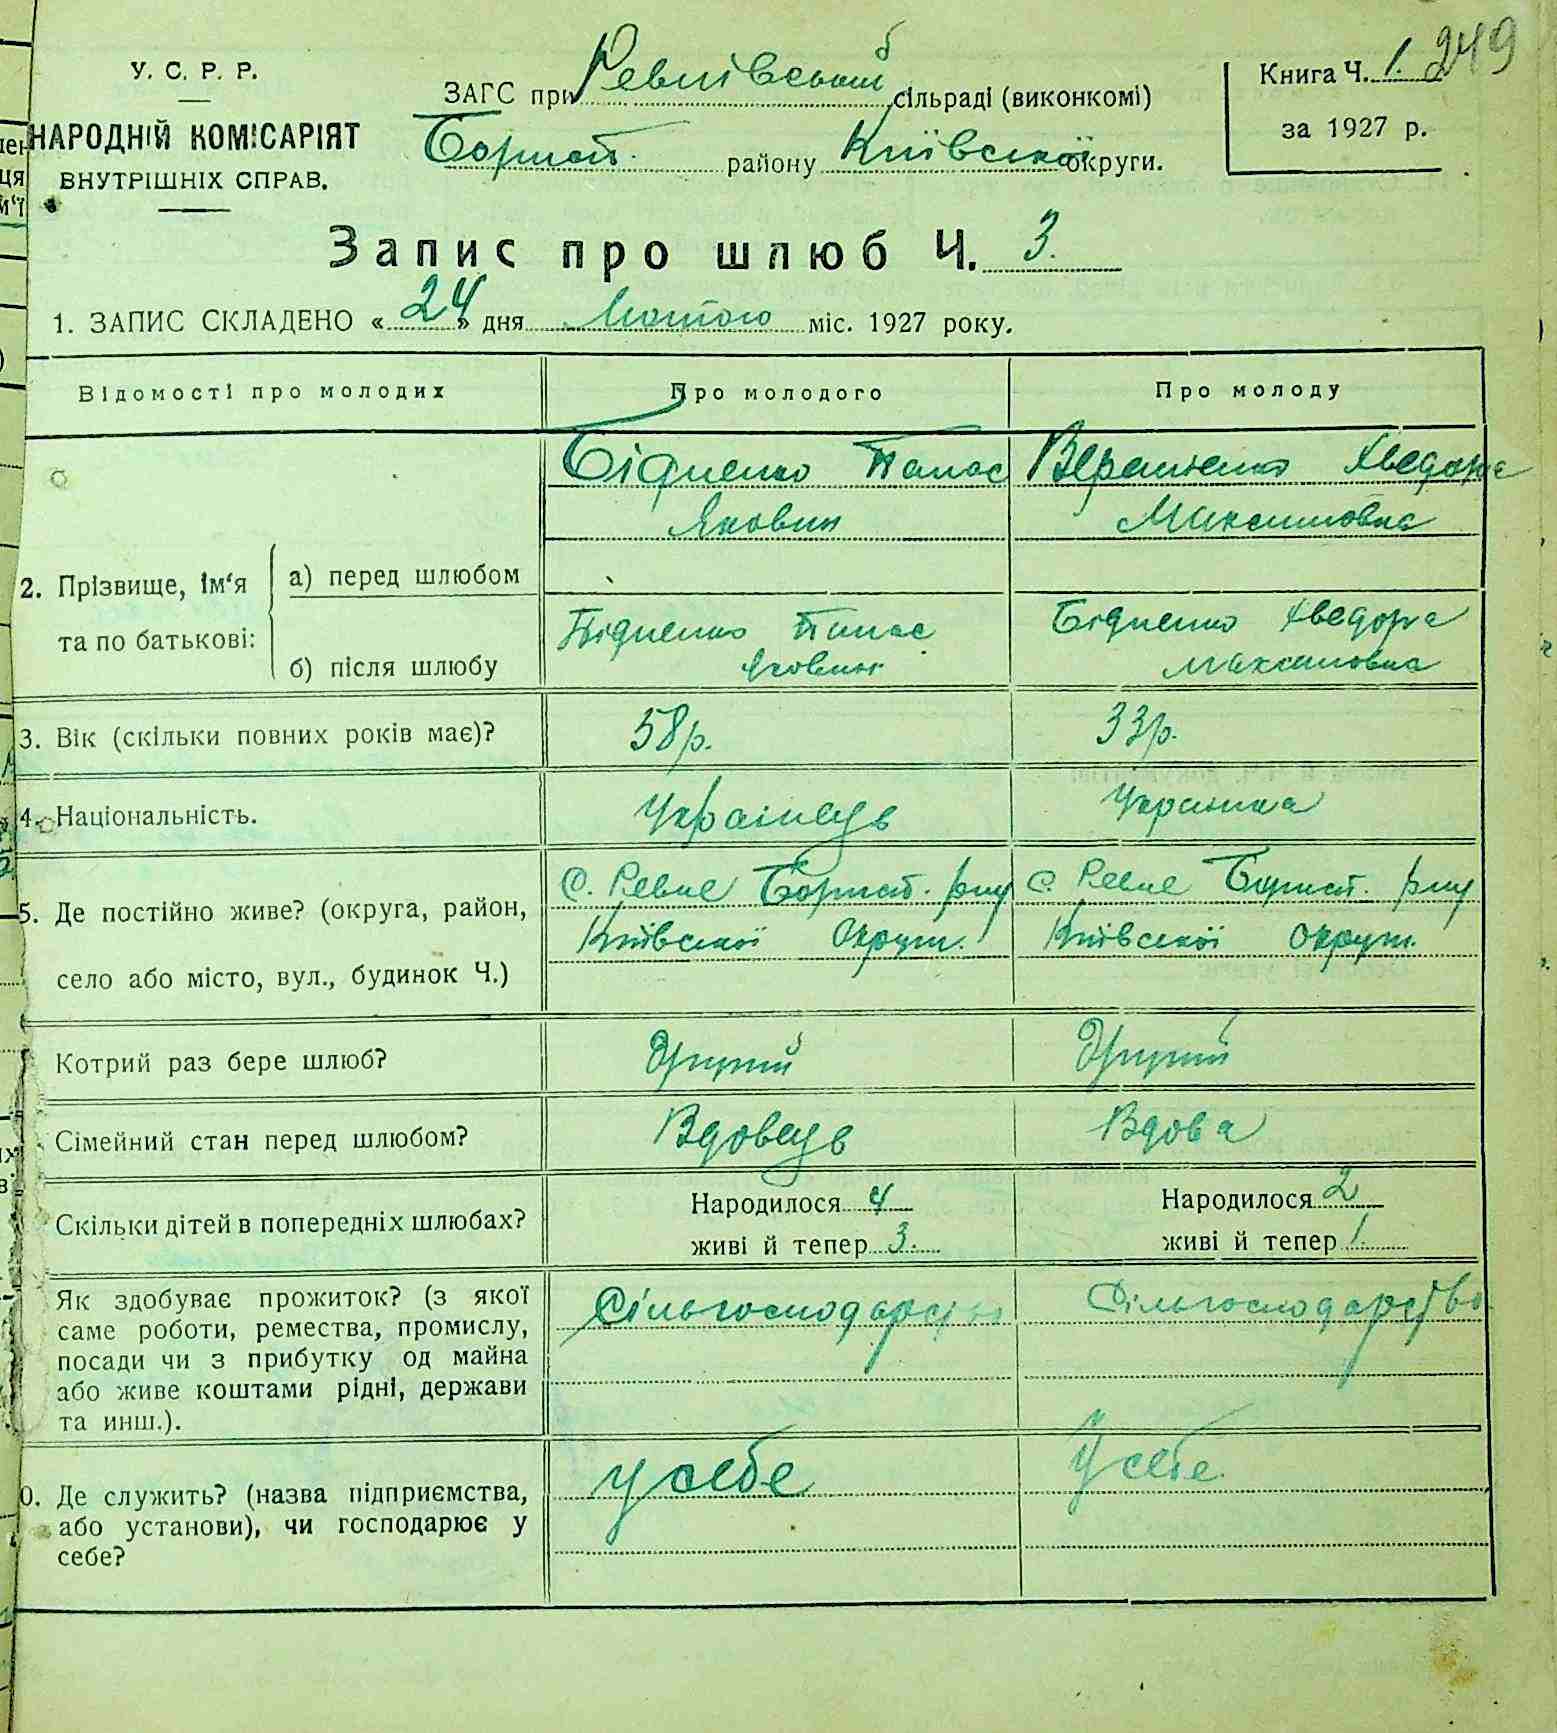 249
У. С. Р. Р.
НАРОДНІЙ КОМІСАРІЯТ
ВНУТРІШНІХ СПРАВ.
ЗАГС при Ревнівській сільраді (виконкомі)
Борисп. району Київської округи.
Книга Ч. 1.
за 1927 р.
Запис про шлюб Ч. 3.
1. ЗАПИС СКЛАДЕНО « 24 » дня Лютого міс. 1927 року.
Відомості про молодих
Про молодого
Про молоду
2. Прізвище, ім‘я та по батькові:
а) перед шлюбом
Бідненко Панас
Якович
Хведора
Максимовна
б) після шлюбу
Бідненко Панас
Якович
Бідненко Хведора
Максимовна
3. Вік (скільки повних років має)?
58 р.
33 р.
4. Національність.
Українець
Українка
5. Де постійно живе? (округа, район,
село або місто, вул., будинок Ч.)
С. Ревне Борисп. р-ну
Київської округи.
С. Ревне Борисп. р-ну
Київської округи.
Котрий раз бере шлюб?
Другий
Другий
Сімейний стан перед шлюбом?
Вдовець
Вдова
Скільки дітей в попередніх шлюбах?
Народилося 4
живі й тепер 3.
Народилося 2
живі й тепер 1.
Як здобуває прожиток? (з якої
саме роботи, ремества, промислу,
посади чи з прибутку од майна
або живе коштами рідні, держави
та инш.).
Сільгосподарство
Сільгосподарство
0. Де служить? (назва підприємства,
або установи), чи господарює у
себе?
у себе
У себе